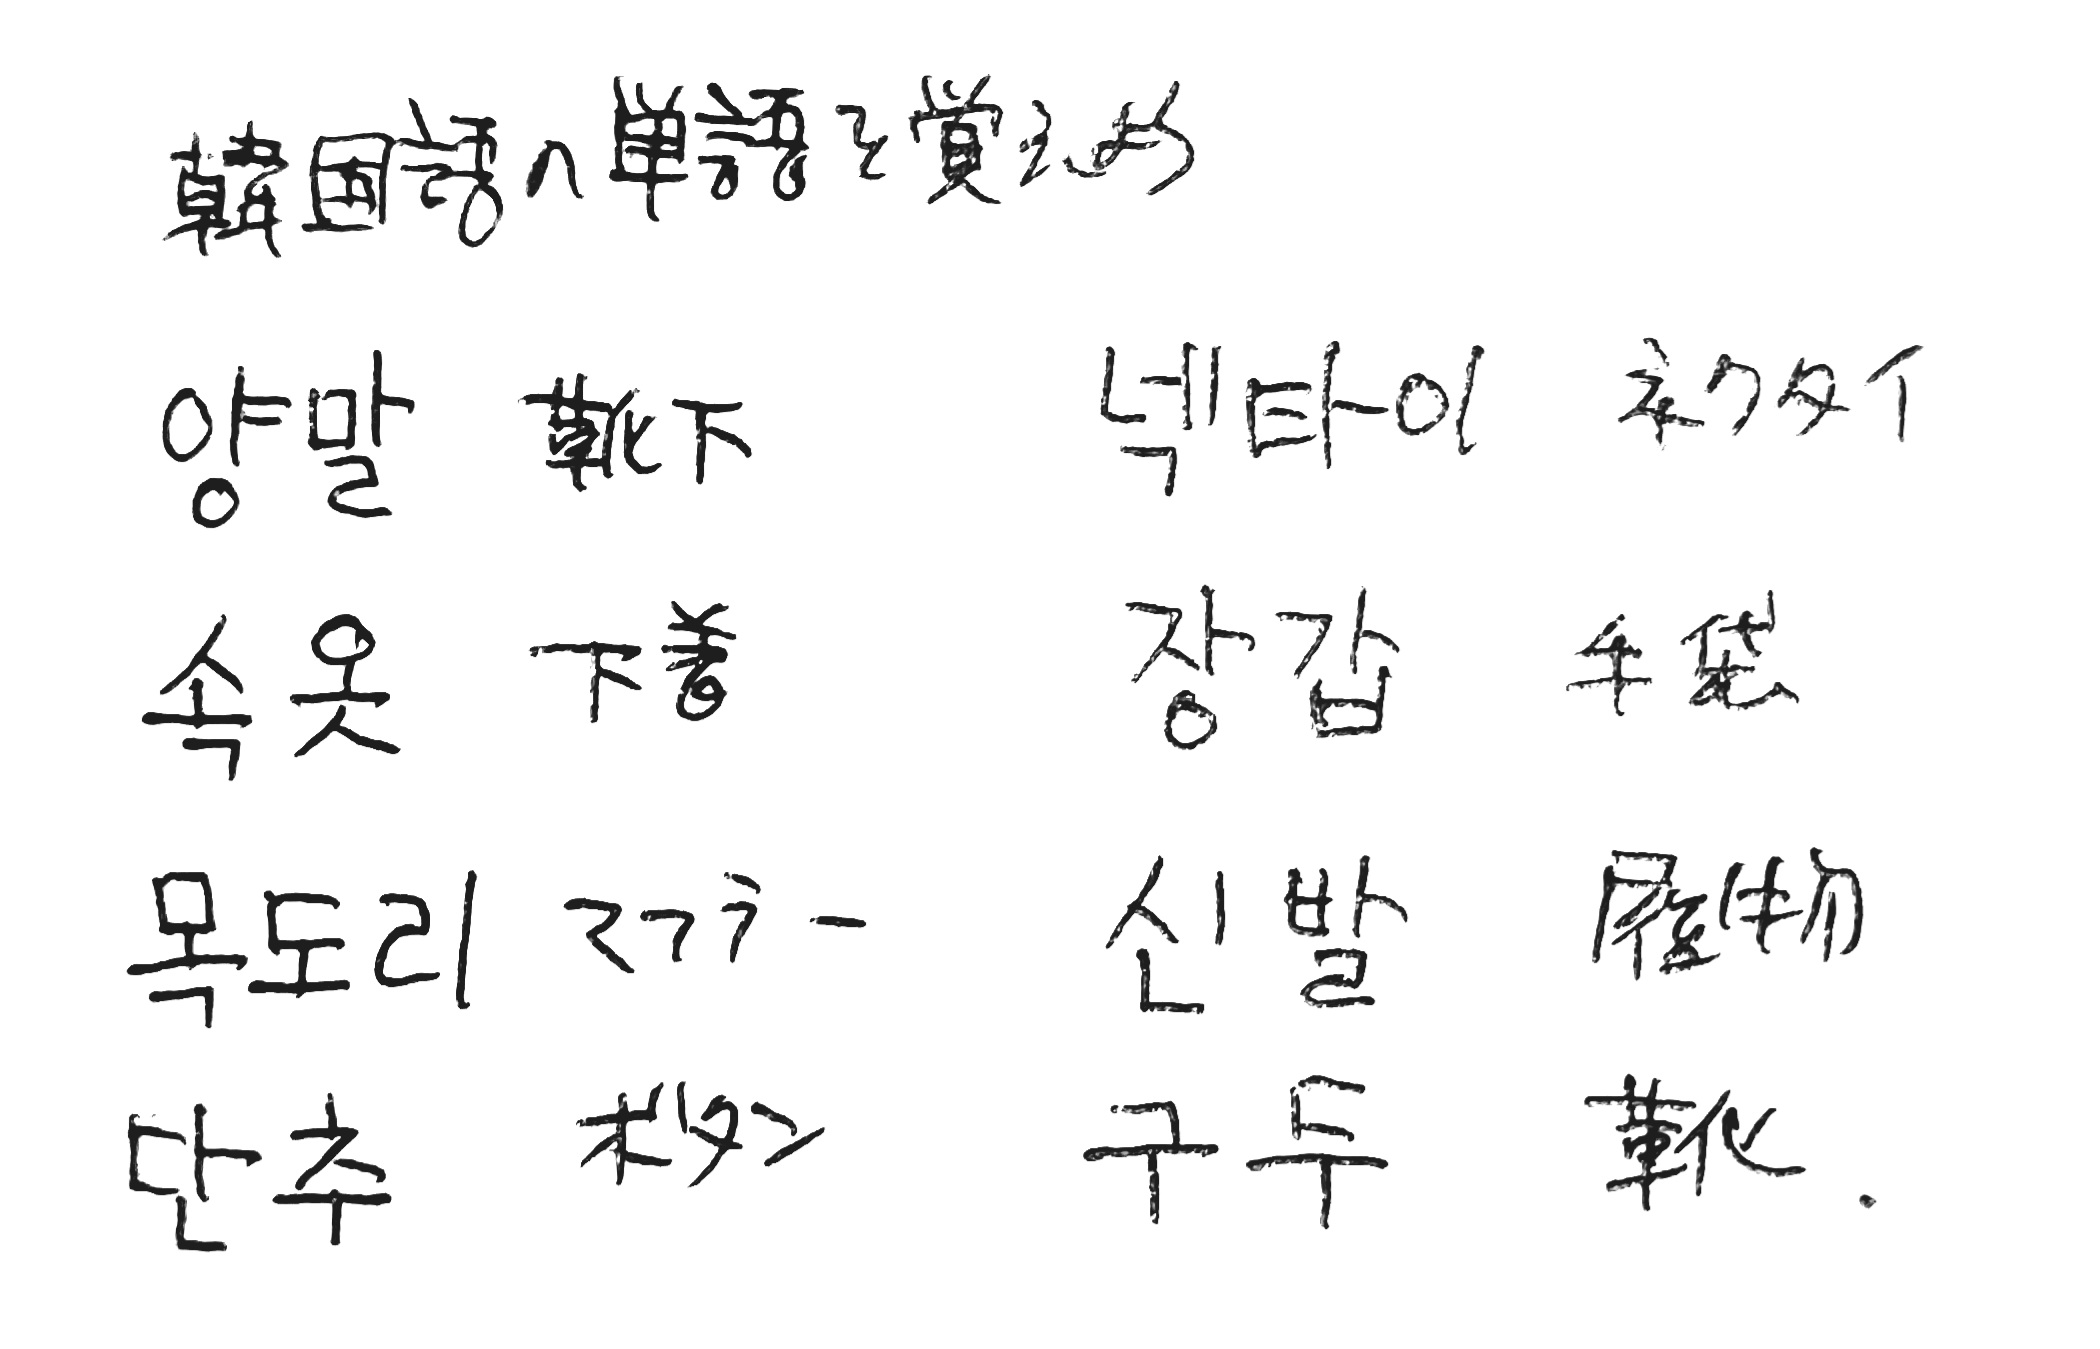 韓国語の単語を覚えよう
양말 靴下 넥타이 ネクタイ
속옷 下着 장갑 手袋
목도리 マフラー 신발 履物
단추 ボタン 구두 靴.